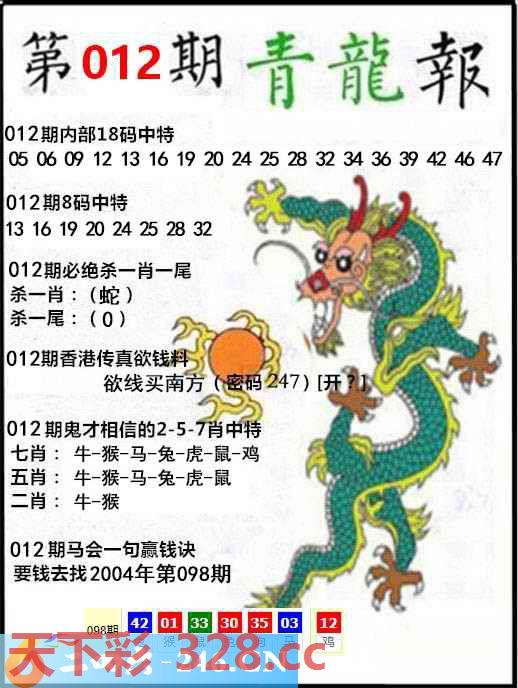 第012期青龍報
012期内部18码中特
05 06 09 12 13 16 19 20 24 25 28 32 34 36 39 42 46 47
012期8码中特
13 16 19 20 24 25 28 32
012期必绝杀一肖一尾
杀一肖：（蛇）
杀一尾：（0）
012期香港传真欲钱料
欲线买南方（密码247）[开？]
012期鬼才相信的2-5-7肖中特
七肖： 牛-猴-马-兔-虎-鼠-鸡
五肖： 牛-猴-马-兔-虎-鼠
二肖： 牛-猴
012期马会一句赢钱诀
要钱去找2004年第098期
098期 42 01 33 30 35 03 12
猴 鼠 兔 狗 马 鸡
天下彩-328.cc